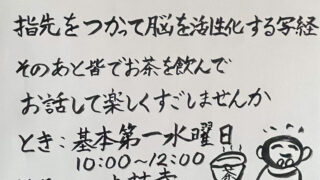 指先をつかって脳を活性化する写経
そのあと皆でお茶を飲んで
お話して楽しくすごしませんか
とき：基本第一水曜日
10:00～12:00
茶